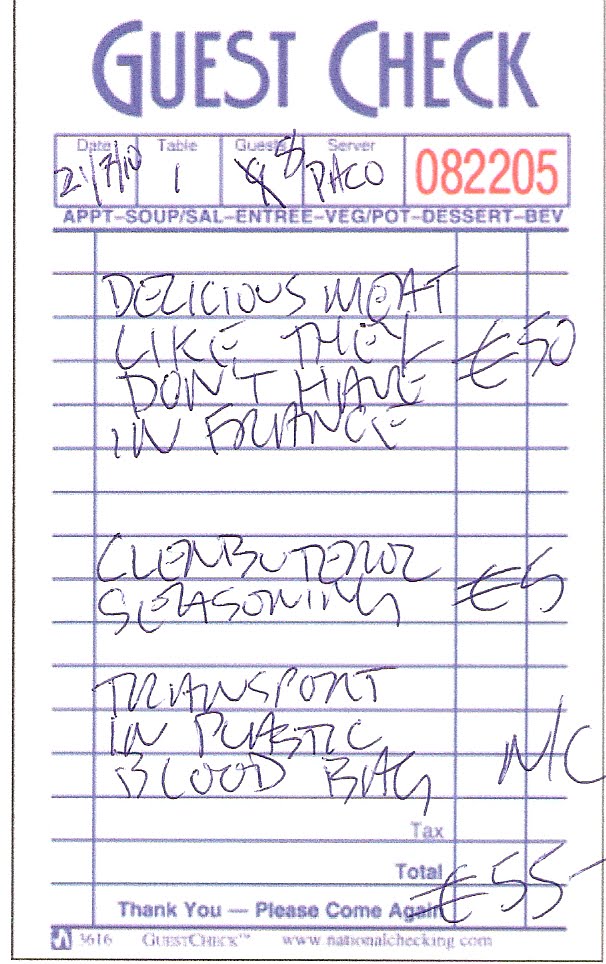 GUEST CHECK
Date Table Guests Server
21/7/10 1 8 PACO 082205
APPT–SOUP/SAL–ENTREE–VEG/POT–DESSERT–BEV
DELICIOUS MEAT
LIKE THEY €50
DON'T HAVE
IN FRANCE
CLENBUTEROL
SEASONING €5
TRANSPORT
IN PLASTIC
BLOOD BAG N/C
Tax
Total €55-
Thank You — Please Come Again
3616 GUESTCHECK™ www.nationalchecking.com